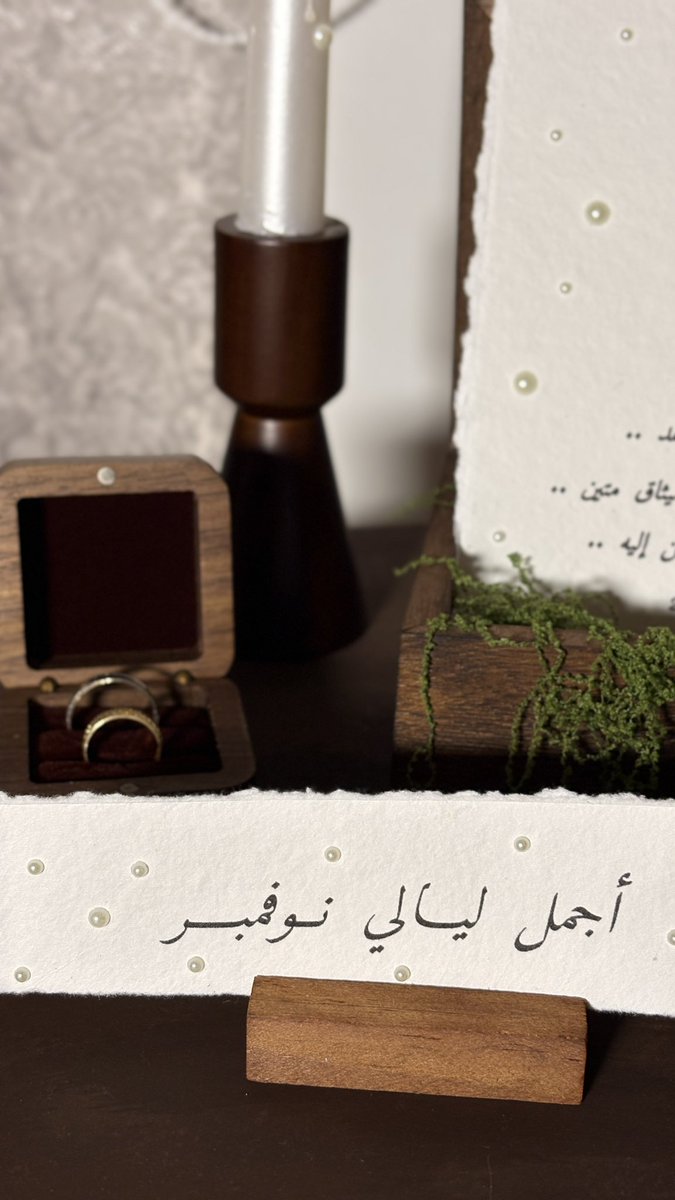 ميثاق متين ..
إليه ..
أجمل ليالي نوفمبر